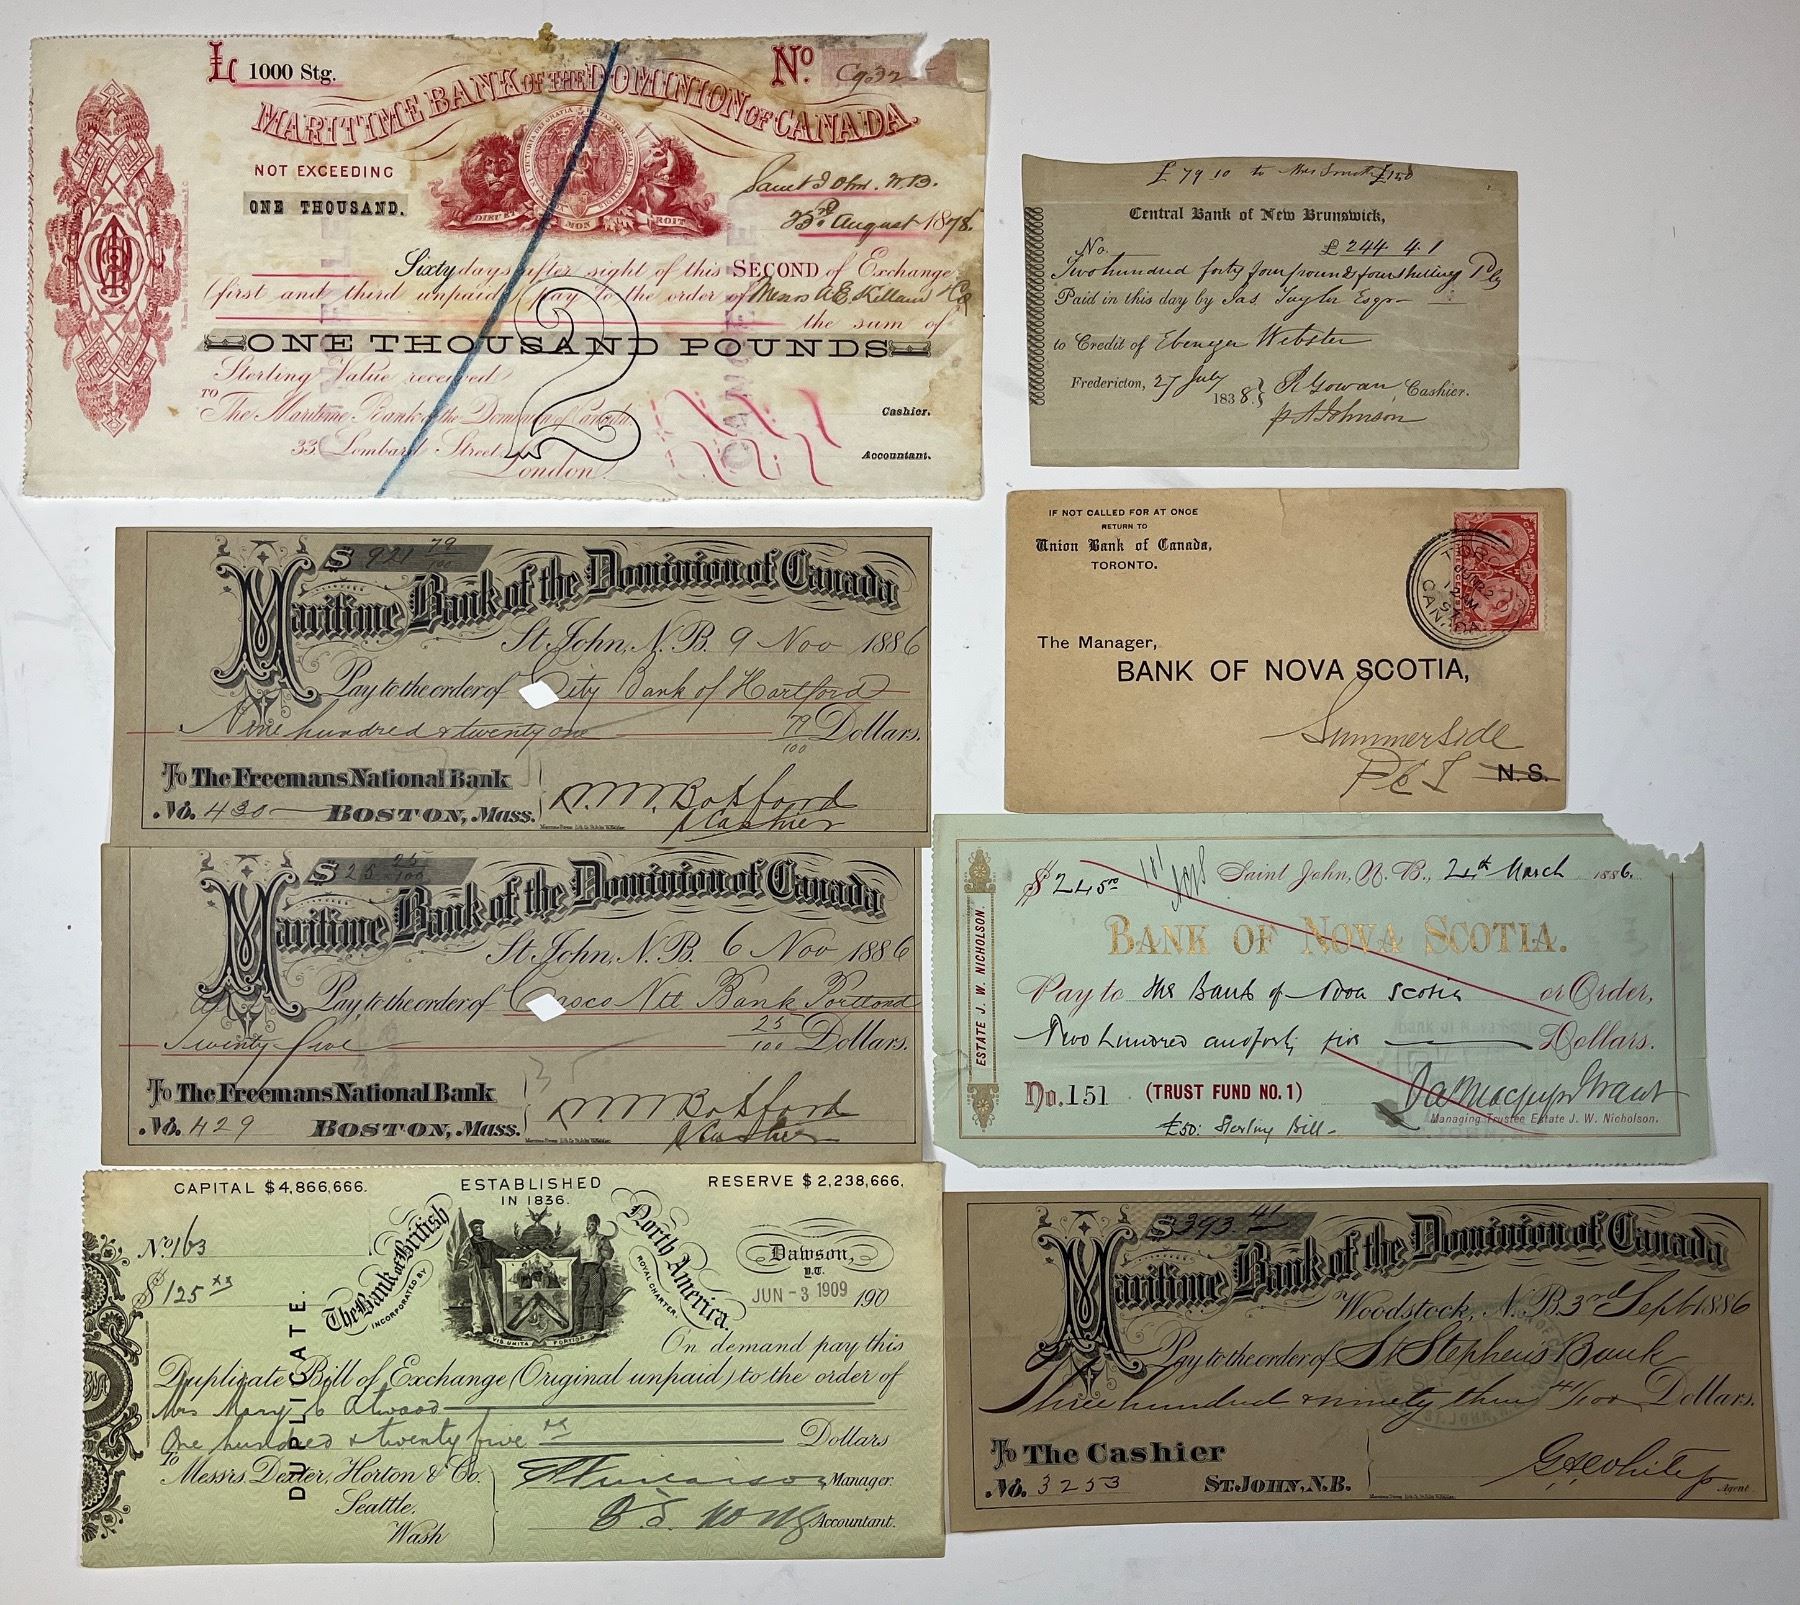 £ 1000 Stg.
No. C932
MARITIME BANK OF THE DOMINION OF CANADA.
NOT EXCEEDING
ONE THOUSAND.
DIEU ET MON DROIT
Saint John. N.B.
23rd August 1878.
Sixty days after sight of this SECOND of Exchange
(first and third unpaid) pay to the order of Messrs A.E. Killam & Co
the sum of
ONE THOUSAND POUNDS
2
Sterling Value received
TO
The Maritime Bank of the Dominion of Canada.
33 Lombard Street,
London.
CANCELLED
Cashier.
Accountant.
£ 79 10 to Mrs Smith £150
Central Bank of New Brunswick,
No.
£ 244 4 1
Two hundred forty four pounds four shillings
Paid in this day by Jas. Taylor Esqr
to Credit of Ebenezer Webster
Fredericton, 27 July 1838.
R Gowan Cashier.
p A Johnson
IF NOT CALLED FOR AT ONCE
RETURN TO
Union Bank of Canada,
TORONTO.
CANADA POSTAGE
CANADA
The Manager,
BANK OF NOVA SCOTIA,
Summerside
P E I N.S.
$ 921 79/100
Maritime Bank of the Dominion of Canada
St John, N.B. 9 Nov 1886
Pay to the order of City Bank of Hartford
Nine hundred & twenty one 79/100 Dollars.
To The Freemans National Bank
No. 430 BOSTON, Mass.
Botsford
Cashier
$ 25 25/100
Maritime Bank of the Dominion of Canada
St John, N.B. 6 Nov 1886
Pay to the order of Casco Ntl. Bank Portland
Twenty five 25/100 Dollars.
To The Freemans National Bank
No. 429 BOSTON, Mass.
Botsford
Cashier
ESTATE J. W. NICHOLSON.
$ 245.00 Saint John, N. B., 24th March 1886.
BANK OF NOVA SCOTIA.
Pay to the Bank of Nova Scotia or Order,
Two hundred and forty five Dollars.
No. 151 (TRUST FUND NO. 1)
Managing Trustee Estate J. W. Nicholson.
£50: Sterling Bill
CAPITAL $4,866,666.
ESTABLISHED
IN 1836.
RESERVE $2,238,666.
No 163
$ 125 xx
The Bank of British North America.
INCORPORATED BY ROYAL CHARTER.
VIS UNITA FORTIOR
Dawson,
Y.T.
JUN - 3 1909 190
DUPLICATE.
On demand pay this
Duplicate Bill of Exchange (Original unpaid) to the order of
Mrs Mary C Atwood
One hundred & twenty five xx Dollars
To
Messrs Dexter, Horton & Co.
Seattle.
Wash
Manager.
Accountant.
$ 393 41
Maritime Bank of the Dominion of Canada
Woodstock, N.B. 3rd Sept 1886
Pay to the order of St Stephens Bank
Three hundred & ninety three 41/100 Dollars.
To The Cashier
No. 3253 ST. JOHN, N.B.
Agent